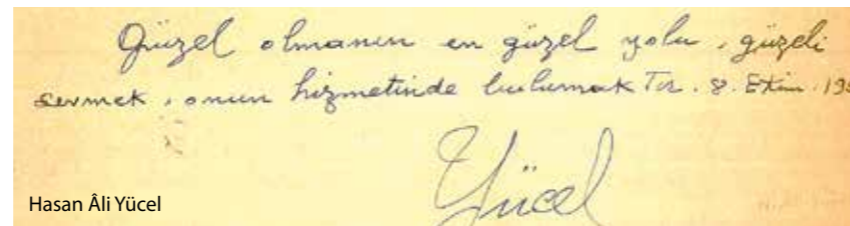 Güzel olmanın en güzel yolu, güzeli
sevmek, onun hizmetinde bulunmaktır. 8. Ekim. 19
Yücel
Hasan Âli Yücel